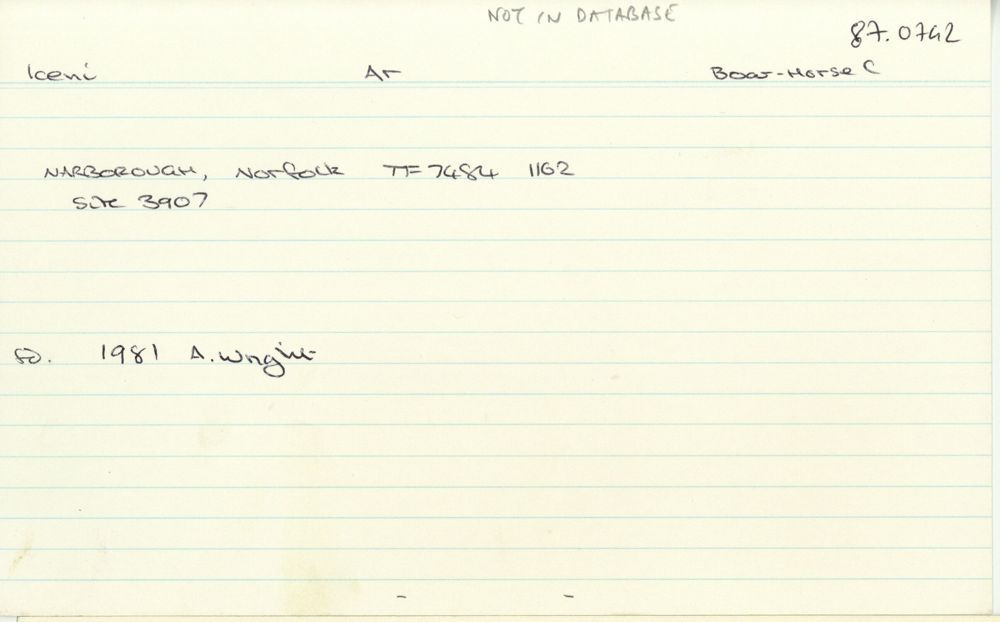 NOT IN DATABASE
87.0742
Iceni Ar Boar-Horse C
NARBOROUGH, Norfolk TF 7484 1162
Site 3907
fd. 1981 A. Wright
- -